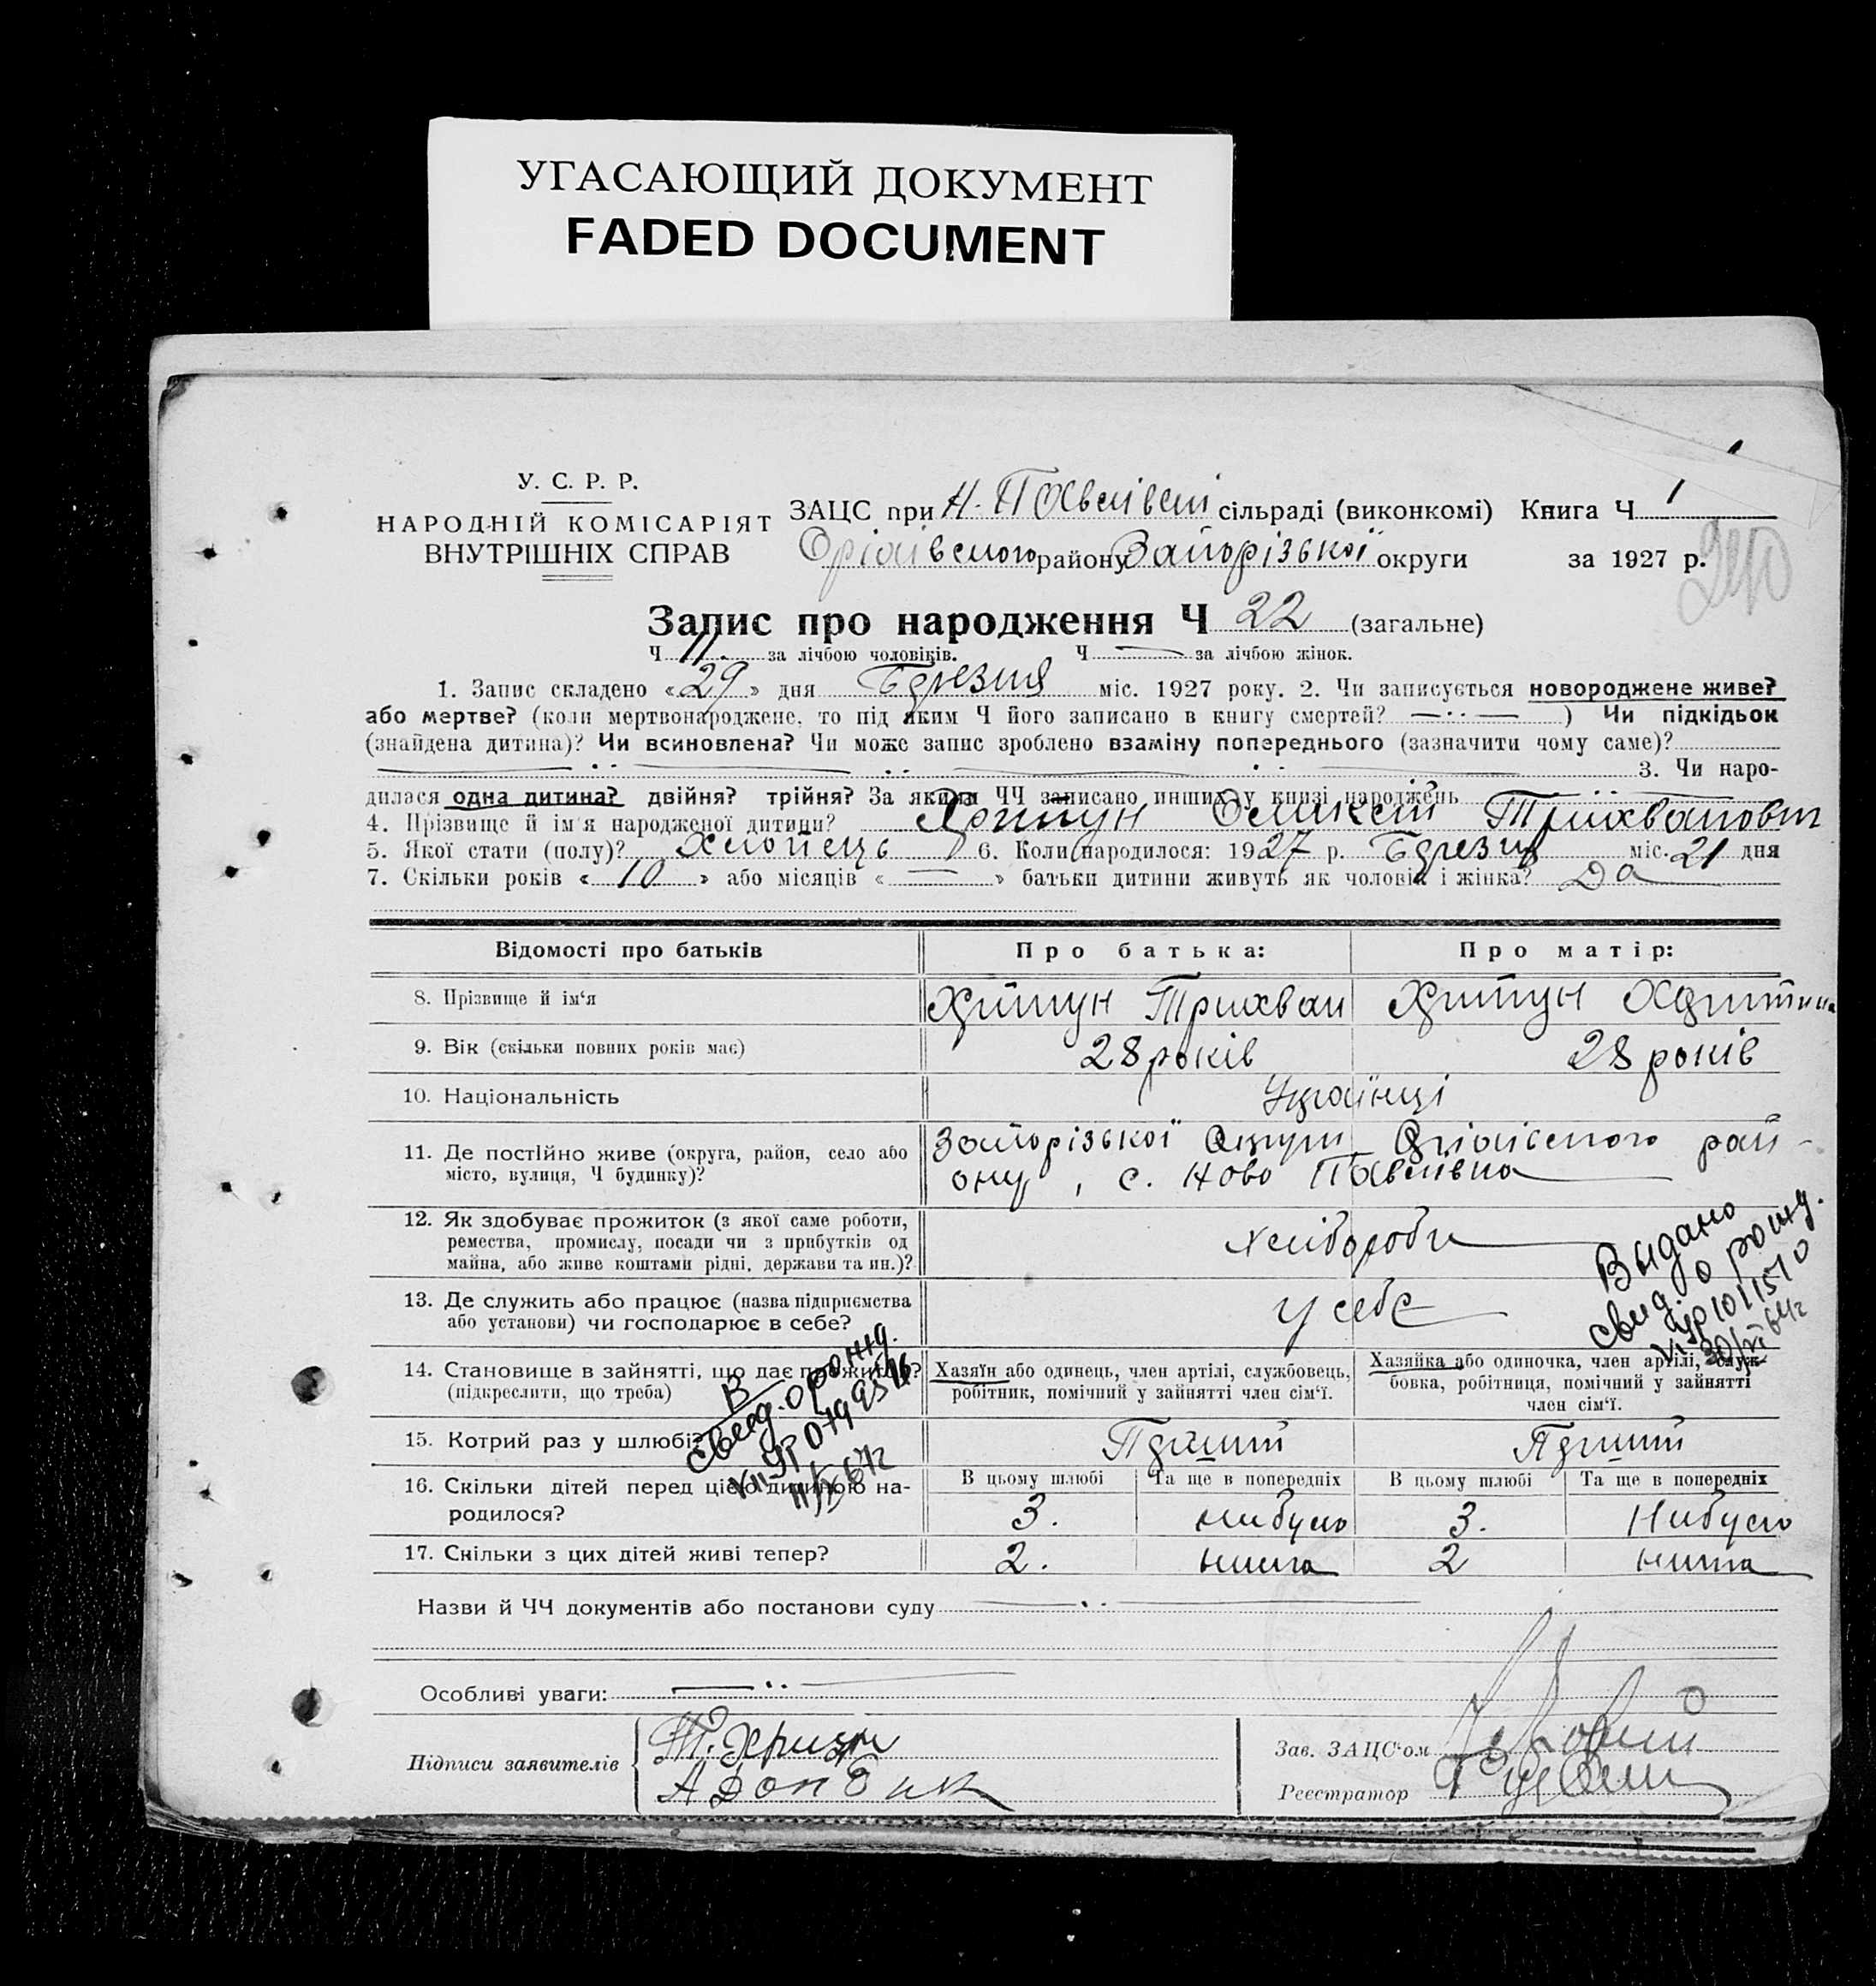 УГАСАЮЩИЙ ДОКУМЕНТ
FADED DOCUMENT
У. С. Р. Р.
НАРОДНІЙ КОМІСАРІЯТ
ВНУТРІШНІХ СПРАВ
ЗАЦС при Н. Павлівськ сільраді (виконкомі) Книга Ч 1
Оріхівського району Запорізької округи за 1927 р.
Запис про народження Ч 22 (загальне)
Ч 11. за лічбою чоловіків. Ч — за лічбою жінок.
1. Запис складено «29» дня Березня міс. 1927 року. 2. Чи записується новороджене живе?
або мертве? (коли мертвонароджене, то під яким Ч його записано в книгу смертей? —··— ) Чи підкідьок
(знайдена дитина)? Чи всиновлена? Чи може запис зроблено взаміну попереднього (зазначити чому саме)?
3. Чи наро-
дилася одна дитина? двійня? трійня? За якими ЧЧ записано инших у книзі народжень
4. Прізвище й ім'я народженої дитини?
5. Якої стати (полу)? Хлопець 6. Коли народилося: 1927 р. Березня міс. 21 дня
7. Скільки років «10» або місяців «—» батьки дитини живуть як чоловік і жінка? Да
Відомості про батьків Про батька: Про матір:
8. Прізвище й ім'я
9. Вік (скільки повних років має) 28 років 28 років
10. Національність Українці
11. Де постійно живе (округа, район, село або
місто, вулиця, Ч будинку)?
Запорізької Округи Оріхівского рай-
ону, с. Ново Павлівка
12. Як здобуває прожиток (з якої саме роботи,
ремества, промислу, посади чи з прибутків од
майна, або живе коштами рідні, держави та ин.)?
хлібороби
13. Де служить або працює (назва підприємства
або установи) чи господарює в себе?
у себе
Выдано
свид. о рожд.
30/XI 64г
14. Становище в зайнятті, що дає прожиток?
(підкреслити, що треба)
Хазяїн або одинець, член артілі, службовець,
робітник, помічний у зайнятті член сім'ї.
Хазяйка або одиночка, член артілі, служ-
бовка, робітниця, помічний у зайнятті
член сім'ї.
В
свид. о рожд.
15. Котрий раз у шлюбі? Перший Перший
16. Скільки дітей перед цією дитиною на-
родилося?
В цьому шлюбі Та ще в попередніх В цьому шлюбі Та ще в попередніх
3. нибуло 3. Нибуло
17. Скільки з цих дітей живі тепер? 2. нима 2 нима
Назви й ЧЧ документів або постанови суду
Особливі уваги:
Підписи заявителів
Зав. ЗАЦС'ом
Реєстратор